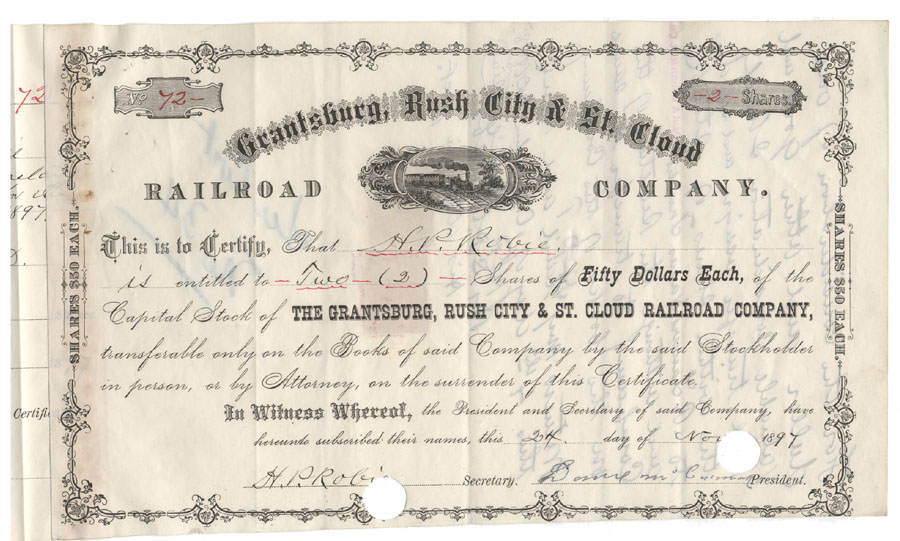 No 72
2 Shares.
Grantsburg, Rush City & St. Cloud
RAILROAD COMPANY.
This is to Certify, That H. P. Robie.
is entitled to Two (2) Shares of Fifty Dollars Each, of the
Capital Stock of THE GRANTSBURG, RUSH CITY & ST. CLOUD RAILROAD COMPANY,
transferable only on the Books of said Company by the said Stockholder
in person, or by Attorney, on the surrender of this Certificate.
In Witness Whereof, the President and Secretary of said Company, have
hereunto subscribed their names, this 24. day of Nov 1897
H. P. Robie Secretary. President.
SHARES $50 EACH.
SHARES $50 EACH.
72
897